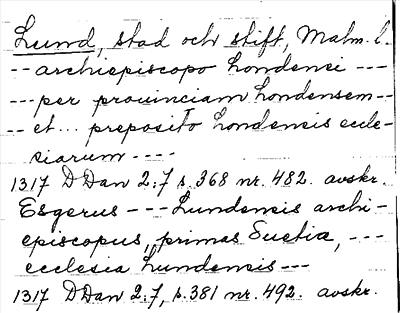 Lund, stad och stift, Malm. l.
-- archiepiscopo Londensi ---
--- per prouinciam Londensem --
-- et ... preposito Londensis eccle-
siarum ----
1317 DDan 2:7 s. 368 nr. 482. avskr.
Esgerus --- Lundensis archi-
episcopus, primas Suetia, ---
ecclesia Lundensis ---
1317 DDan 2:7, s. 381 nr. 492. avskr.